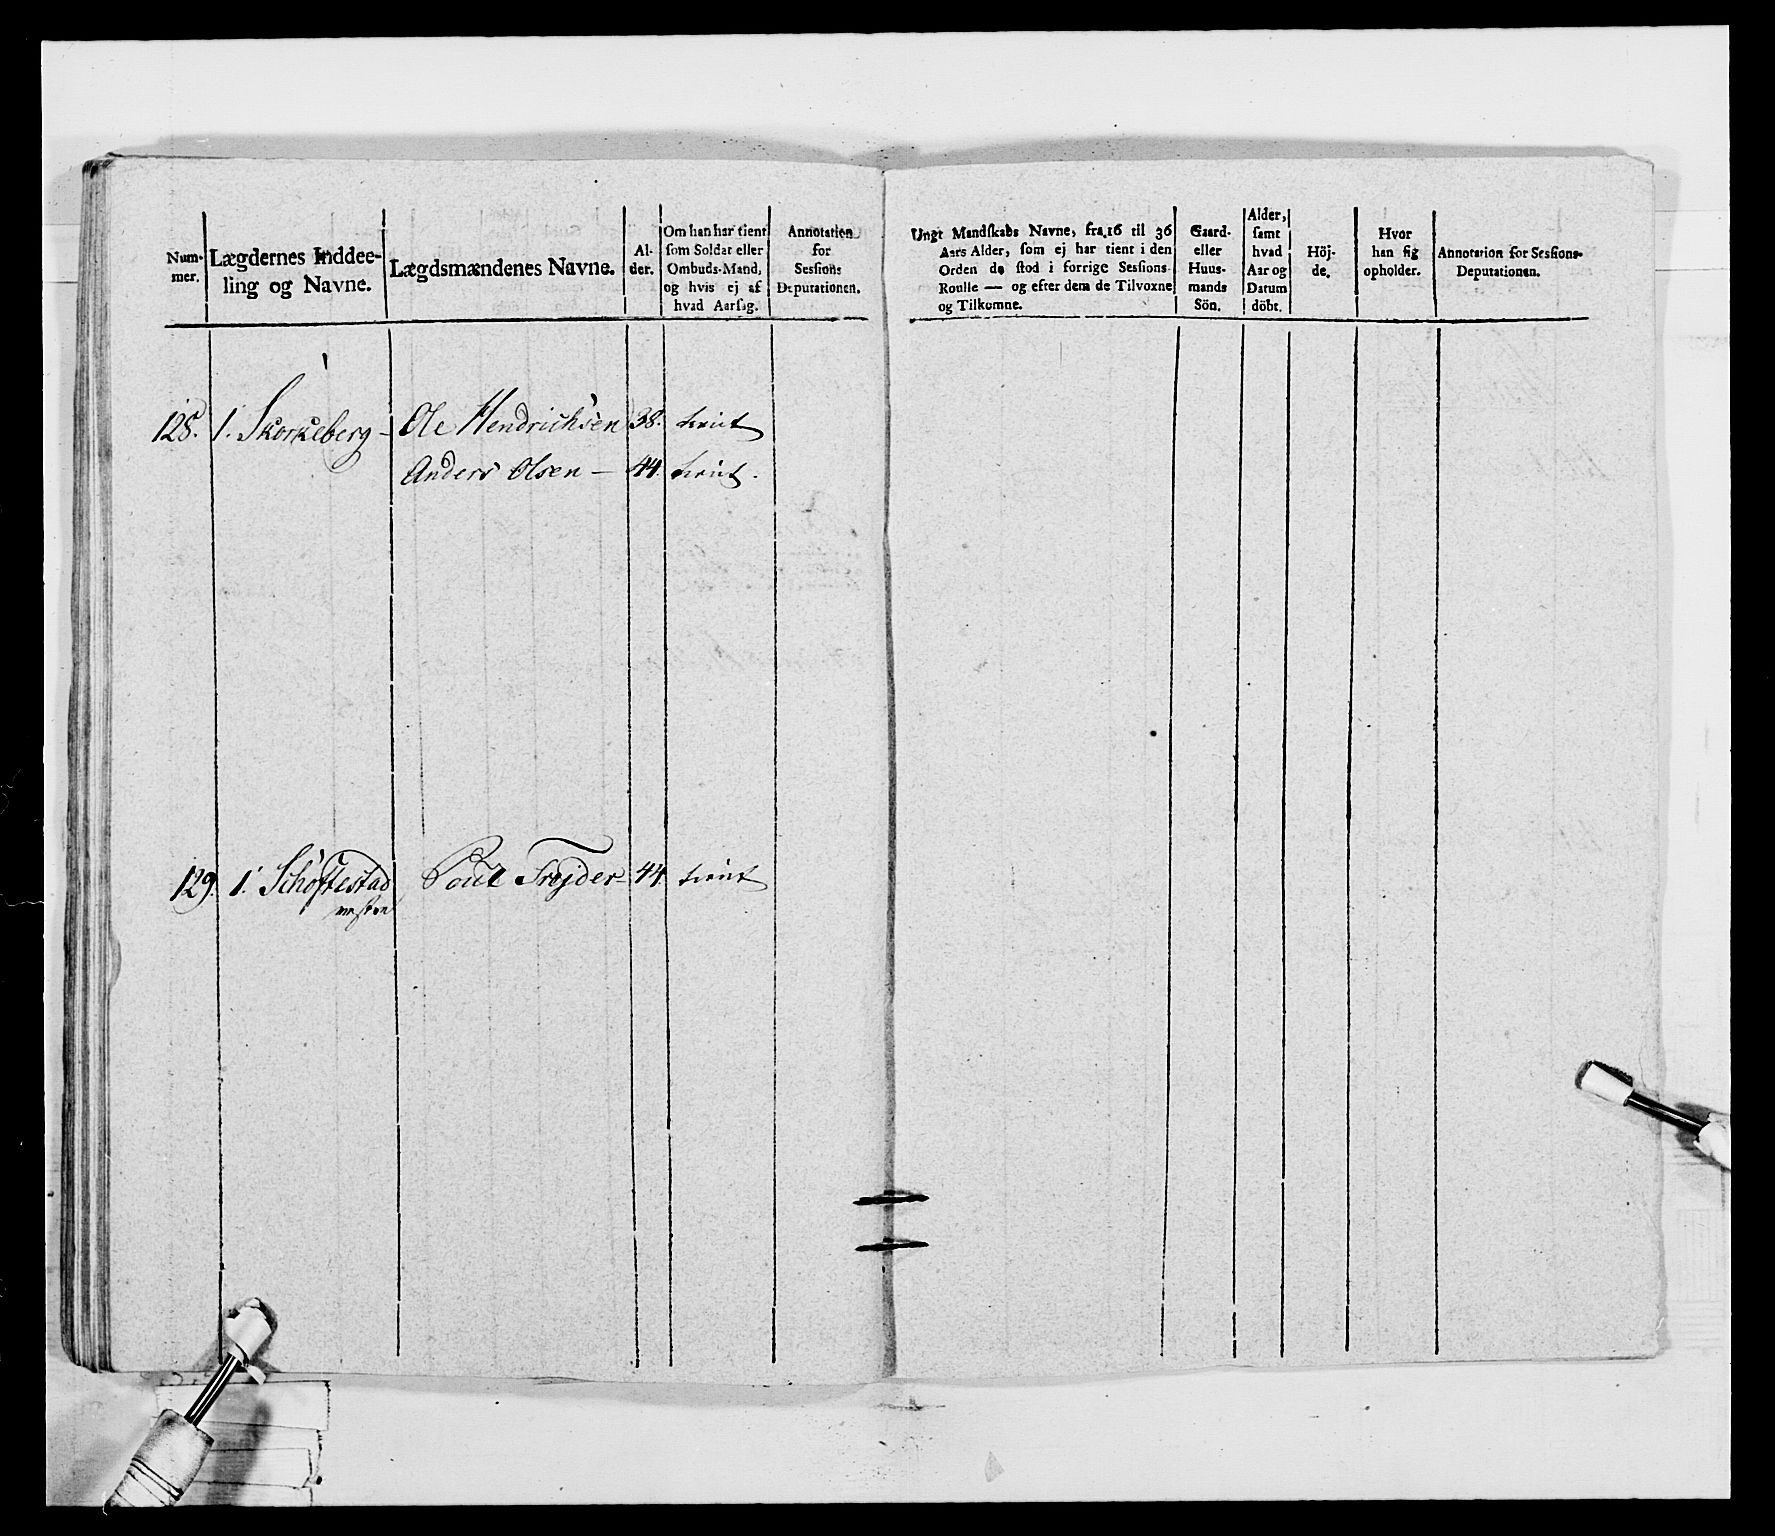 Num-
mer.
Lægdernes Inddee-
ling og Navne.
Lægdsmændenes Navne.
Al-
der.
Om han har tient
som Soldat eller
Ombuds-Mand,
og hvis ej af
hvad Aarsag.
Annotation
for
Sessions
Deputationen.
Ungt Mandskabs Navne, fra 16 til 36
Aars Alder, som ej har tient i den
Orden de stod i forrige Sessions-
Roulle — og efter dem de Tilvoxne
og Tilkomne.
Gaard-
eller
Huus-
mands
Sön.
Alder,
samt
hvad
Aar og
Datum
döbt.
Höj-
de.
Hvor
han sig
opholder.
Annotation for Sessions-
Deputationen.
128. 1. Skorkeberg - Ole Hendrichsen 38. tient
Anders Olsen - 44. tient.
129. 1. Schöftestad Poul Trejder 44. tient